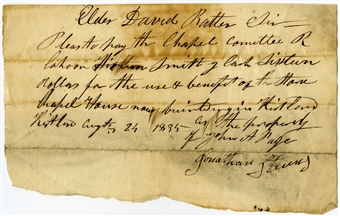 Elder David Ratter Sir
Please to pay the Chapel Comittee R
Cahoon Smith & Cash Sixteen
dollars for the use & benefit of the Stone
Chapel House now building in Kirtland
Kirtland 24 1835 as the property
of John A Page
Jonathan